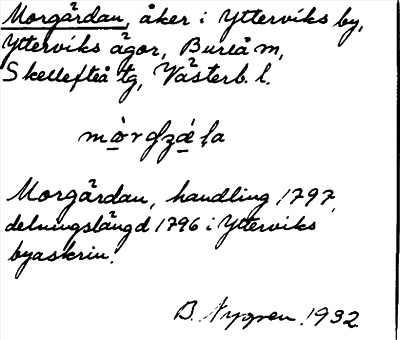 Morgärdan, åker i Ytterviks by,
Ytterviks ägor, Bureå m,
Skellefteå tg, Västerb. l.
Morgärdan, handling 1797,
delningslängd 1796 i Ytterviks
byaskrin.
B. Nygren 1932.